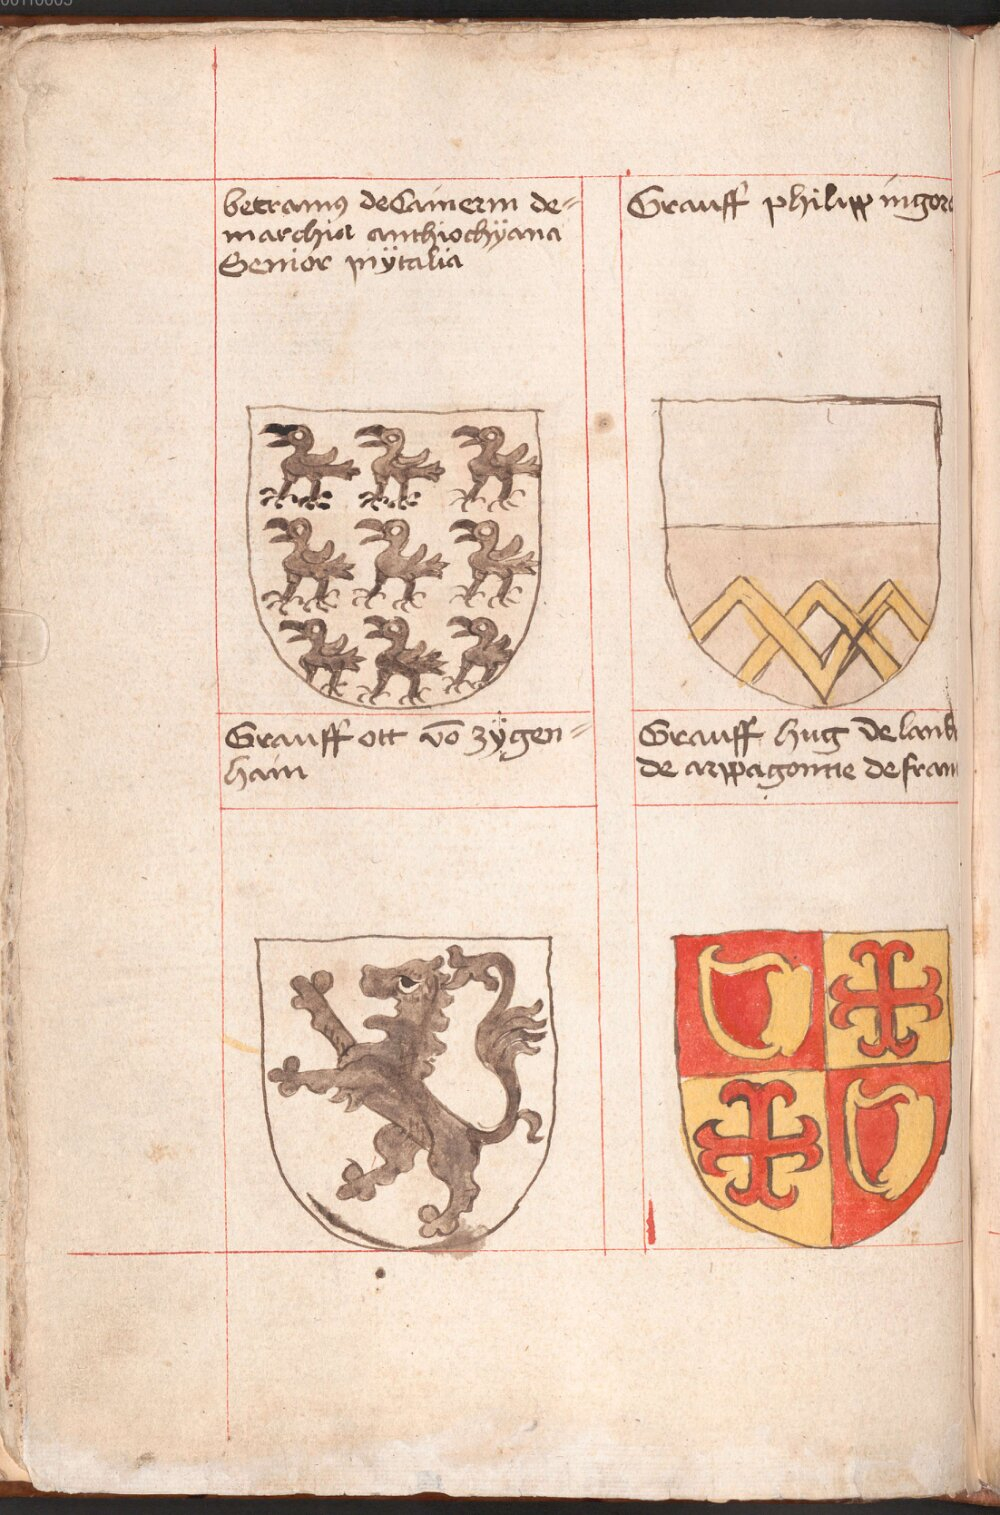 betramus de Camerin de=
marchia anthiochÿana
Senior in ÿtalia
Grauff philipp in gore
Grauff ott võ zÿgen=
hain
Grauff hug de lan
de arppagonne de fran